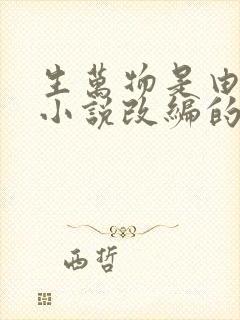 生萬物是由
小說改編的
西哲